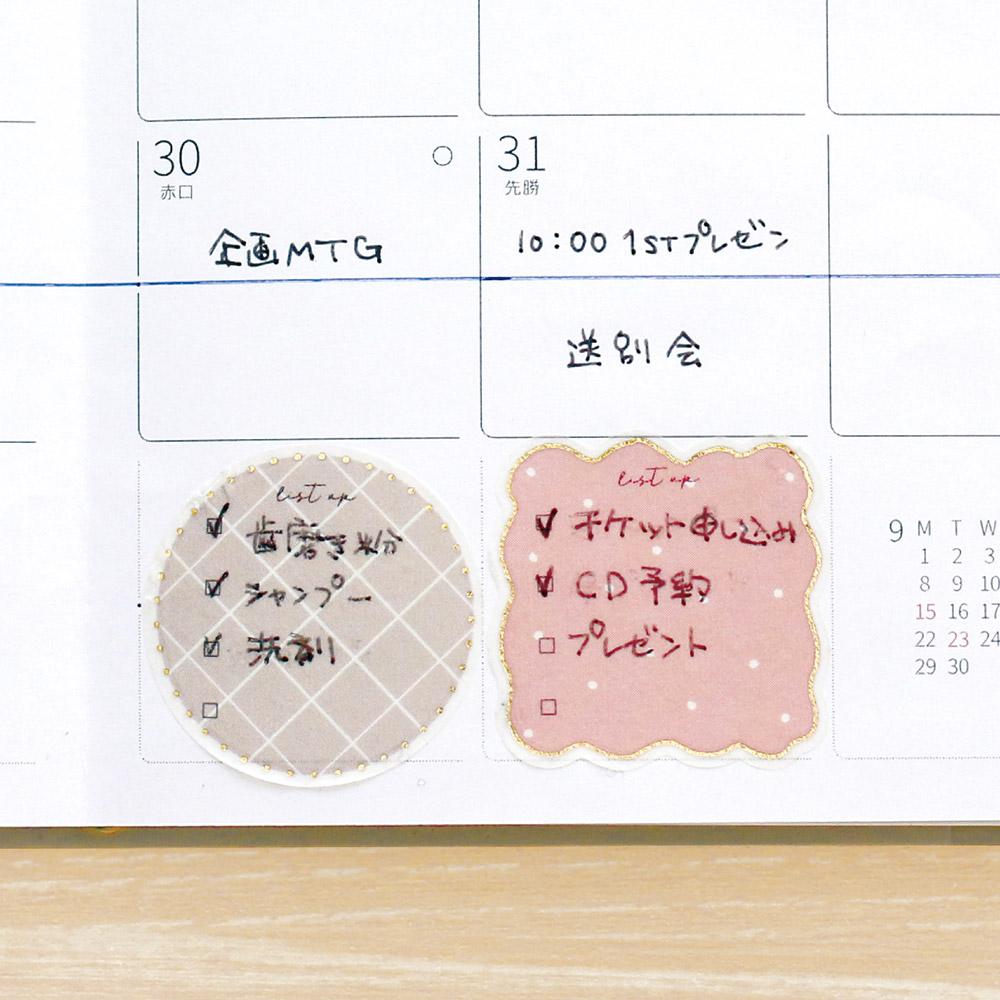 30
赤口
企画MTG
31
先勝
10:00 1STプレゼン
送別会
list up
歯磨き粉
シャンプー
洗剤
list up
チケット申し込み
CD予約
プレゼント
9 M T W
1 2 3
8 9 10
15 16 17
22 23 24
29 30